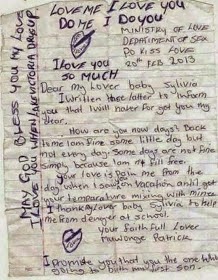 LOVE ME I LOVE YOU
DO ME I DO YOU
MINISTRY OF LOVE
DEPARTMENT OF SEX
DO KISS LOVE
20th FEB 2013
I LOVE YOU
SO MUCH
MAY GOD BLESS YOU MY LOVE
I LOVE YOU WHEN LAKE VICTORIA DRIES UP
Dear my Lover baby Sylivia
I written these latter to inform
you that I will never for got you my
dear.
How are you now days? Back
to me I am fine some little day but
not every day. Some day am not fine
simply because I am not fill free.
Your love is pain me from the
day when I saw in vacation and I get
your temperature mixing with mine
I thank my Lover baby Sylivia to help
me from denger at school.
Your faith full Lover
Mawonge Patrick
I promote you that you the one who
going to both my first son